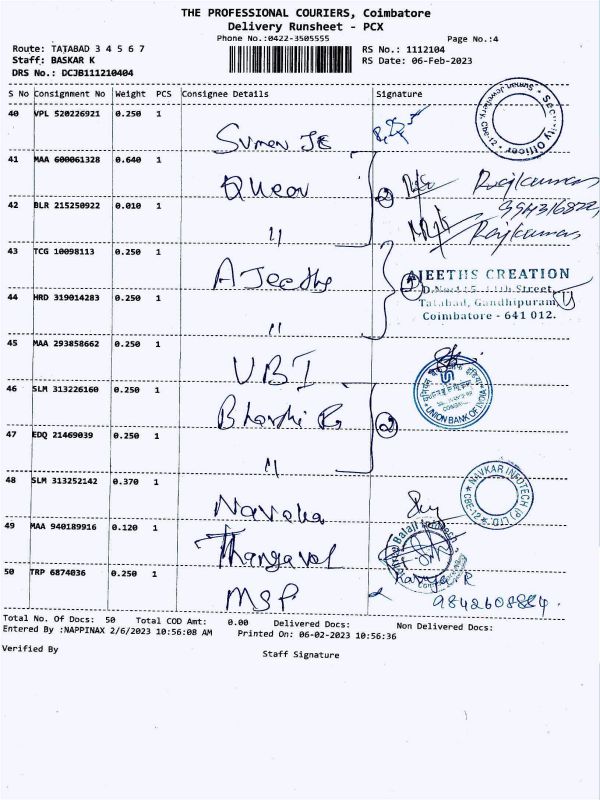 THE PROFESSIONAL COURIERS, Coimbatore
Delivery Runsheet - PCX
Phone No.:0422-3505555
Page No.:4
Route: TATABAD 3 4 5 6 7
RS No.: 1112104
Staff: BASKAR K
RS Date: 06-Feb-2023
DRS No.: DCJB111210404
S No Consignment No Weight PCS Consignee Details Signature
40 VPL 520226921 0.250 1
Security Officer
Suman Jewellery, CBE-12
41 MAA 600061328 0.640 1
Queen
Rajkumar
42 BLR 215250922 0.010 1
"
Rajkumar
43 TCG 10098113 0.250 1
AJeeths
2
1
AJEETHS CREATION
Street,
Tatabad, Gandhipuram,
Coimbatore - 641 012.
44 HRD 319014283 0.250 1
"
45 MAA 293858662 0.250 1
UBI
UNION BANK OF INDIA
46 SLM 313226160 0.250 1
2
47 EDQ 21469039 0.250 1
"
48 SLM 313252142 0.370 1
NAVKAR INFOTECH (P) LTD.
CBE-12
49 MAA 940189916 0.120 1
Thangavel
50 TRP 6874036 0.250 1
MSP
9842608884
Total No. Of Docs: 50 Total COD Amt: 0.00 Delivered Docs: Non Delivered Docs:
Entered By :NAPPINAX 2/6/2023 10:56:08 AM Printed On: 06-02-2023 10:56:36
Verified By
Staff Signature